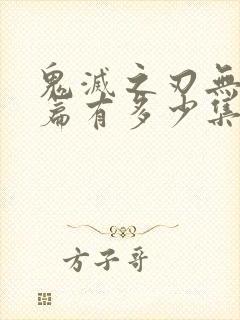 鬼滅之刃無
篇有多少集
方子哥